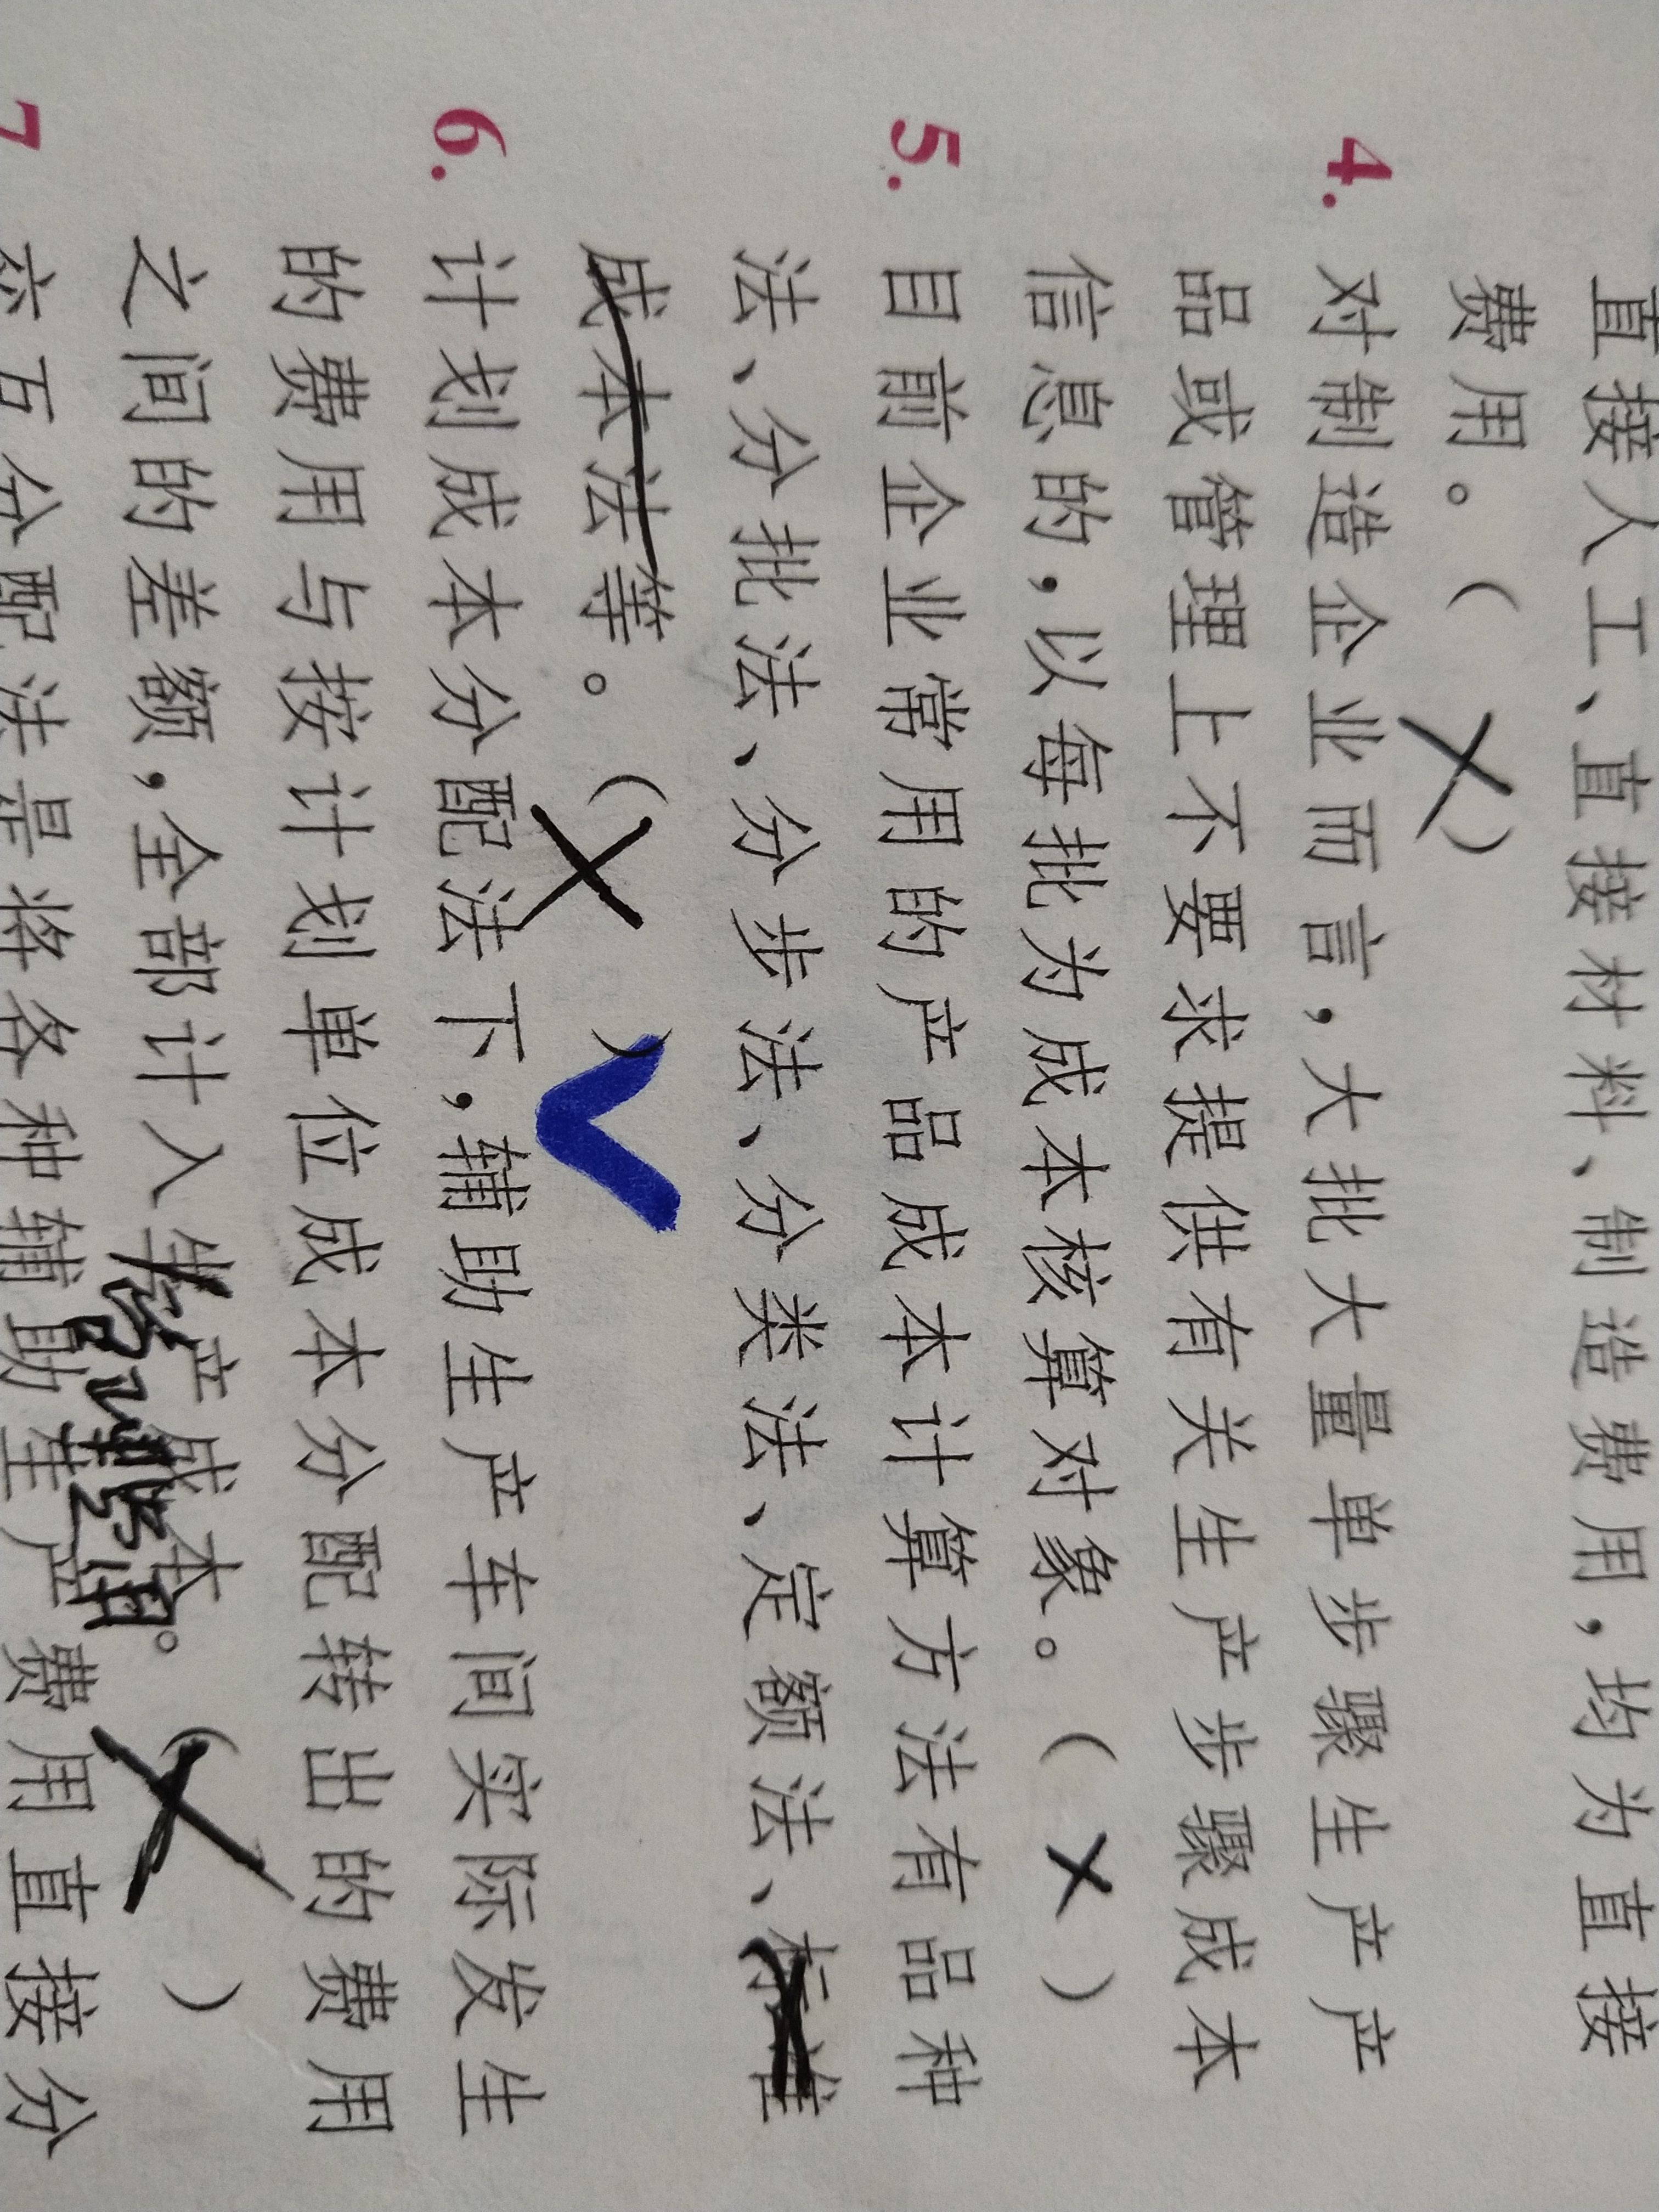 直接人工、直接材料、制造费用,均为直接
费用。( × )
4. 对制造企业而言,大批大量单步骤生产产
品或管理上不要求提供有关生产步骤成本
信息的,以每批为成本核算对象。( × )
5. 目前企业常用的产品成本计算方法有品种
法、分批法、分步法、分类法、定额法、标准
成本法等。( × ) ✓
6. 计划成本分配法下,辅助生产车间实际发生
的费用与按计划单位成本分配转出的费用
之间的差额,全部计入生产成本。( × )
管理费用
7
交互分配法是将各种辅助生产费用直接分